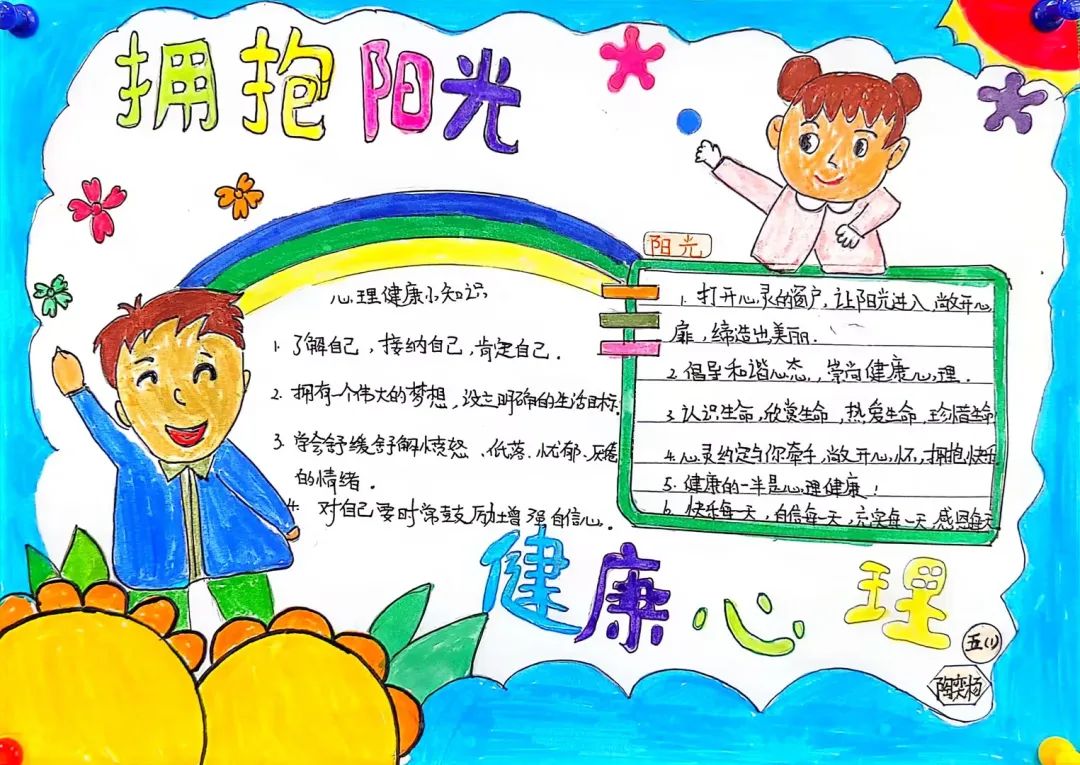 拥抱阳光
心理健康小知识
1. 了解自己，接纳自己，肯定自己.
2. 拥有一个伟大的梦想，设立明确的生活目标.
3 学会舒缓舒解愤怒、低落、忧郁、厌倦
的情绪.
4. 对自己要时常鼓励增强自信心.
阳光
1. 打开心灵的窗户，让阳光进入，敞开心
扉，缔造出美丽.
2.倡导和谐心态，崇尚健康心理.
3.认识生命，欣赏生命，热爱生命，珍惜生命
4.心灵约定与你牵手，敞开心怀，拥抱快乐
5. 健康的一半是心理健康！
6. 快乐每一天，自信每一天，充实每一天，感恩每天
健康心理
五(1)
陶奕杨